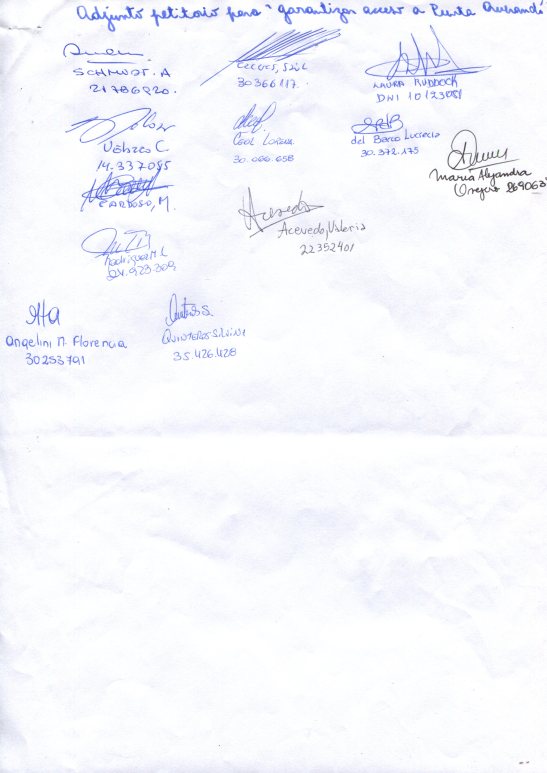 Adjunto petitorio para "garantizar acceso a Punta Querandí"
SCHMIDT. A
21786920.
30366117.
LAURA RUDDOCK
DNI 10123081
C.
14.337085
CARDOSO, M.
Ceol Lorena
30.066.658
del Barco Lucrecia
30.372.175
María Alejandra
Acevedo
Acevedo, Valeria
22352401
Rodriguez M.L
24.923.309
Angelini M. Florencia
30253791
Quinteros S.
Quinteros Silvina
35.426.428